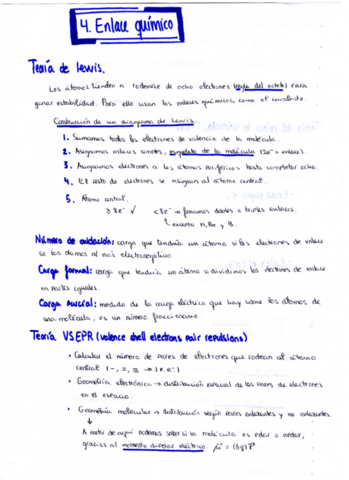 4. Enlace químico
Teoría de Lewis.
Los átomos tienden a rodearse de ocho electrones (regla del octeto) para
ganar estabilidad. Para ello usan los enlaces químicos, como el covalente.
Construcción de un diagrama de Lewis
1. Sumamos todos los electrones de valencia de la molécula.
2. Asignamos enlaces simples, esqueleto de la molécula (2e⁻ x enlace).
3. Asignamos electrones a los átomos periféricos hasta completar ocho.
4. El resto de electrones se asignan al átomo central.
5. Átomo central.
≥ 8e⁻ ✓ < 8e⁻ → formamos dobles o triples enlaces.
excepto H, Be y B.
Número de oxidación: carga que tendría un átomo si los electrones de enlace
se los damos al más electronegativo.
Carga formal: carga que tendría un átomo si dividimos los electrones de enlace
en partes iguales.
Carga parcial: medida de la carga eléctrica que hay sobre los átomos de
una molécula, es un número fraccionario.
Teoría VSEPR (valence shell electrons pair repulsions)
• Calcular el número de pares de electrones que rodean al átomo
central (-, =, ≡ → 1 p. e⁻)
• Geometría electrónica → distribución espacial de los pares de electrones
en el espacio.
• Geometría molecular → distribución según pares enlazantes y no enlazantes.
↓
A partir de aquí podemos saber si la molécula es polar o apolar,
gracias al momento dipolar eléctrico.